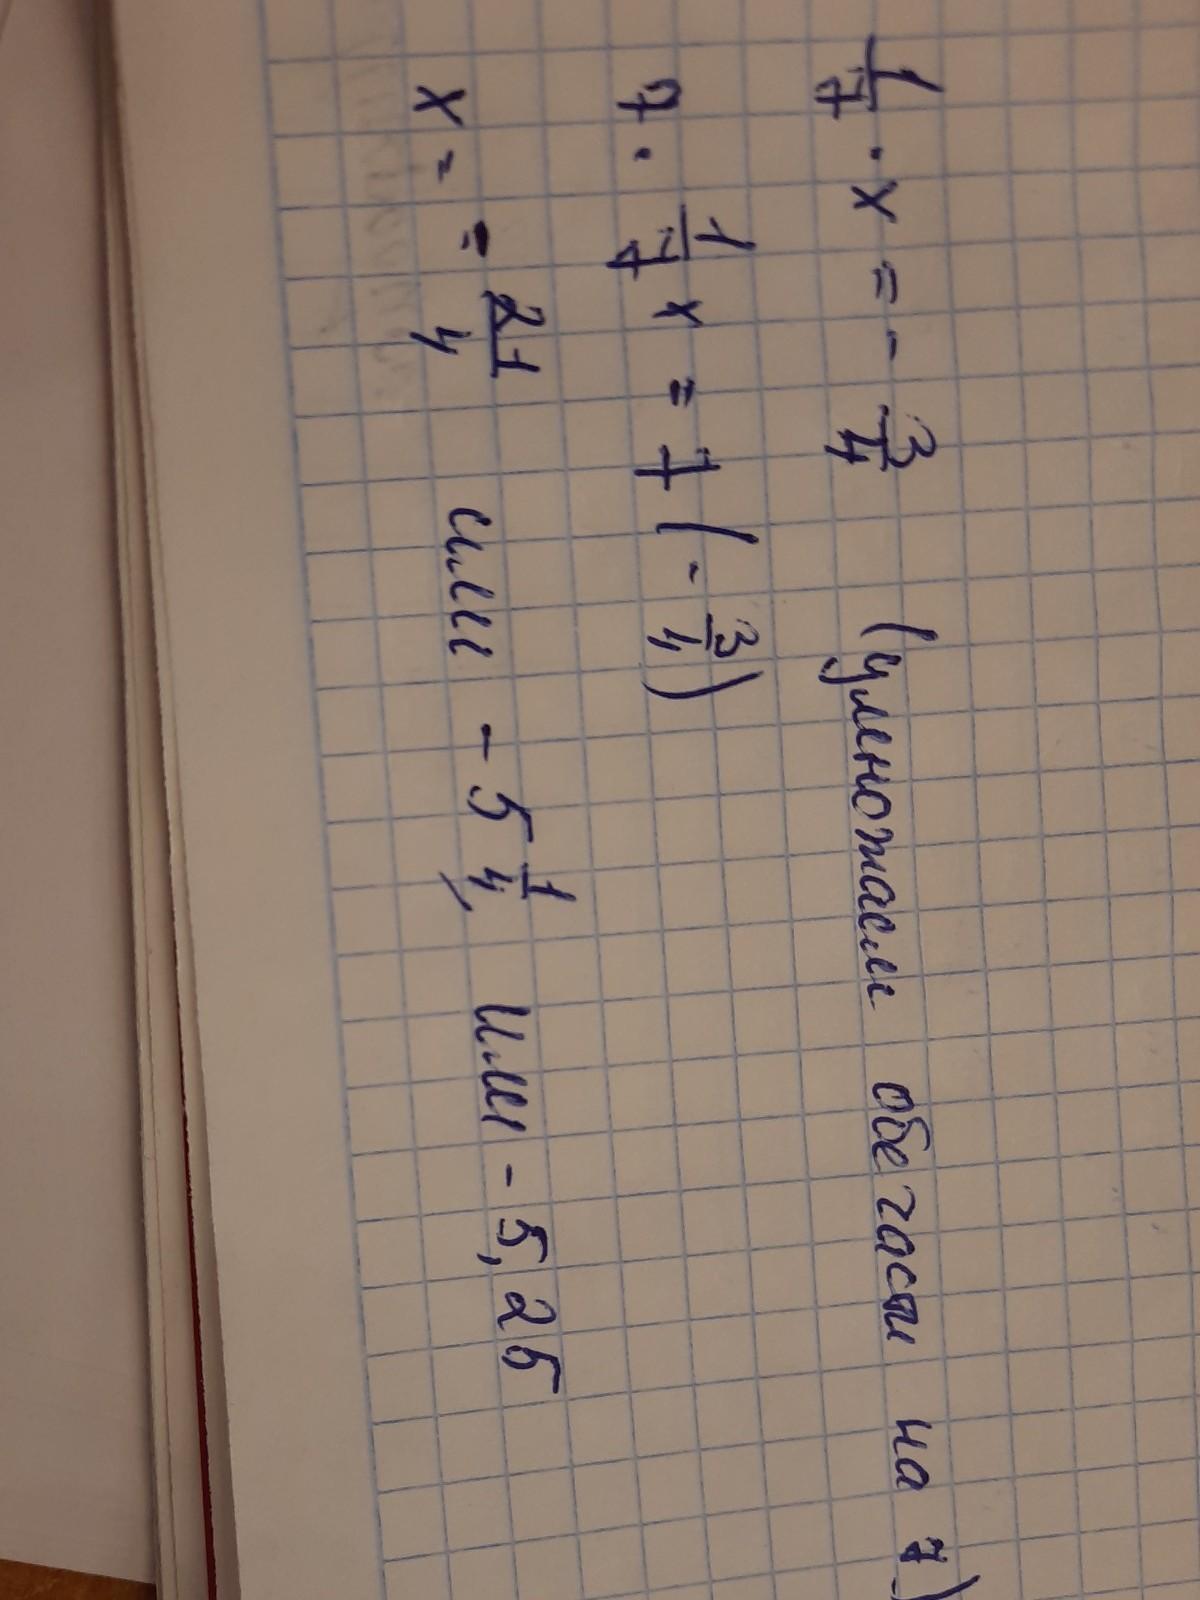 1/7 · x = - 3/4 (умножаем обе части на 7)
7 · 1/7 x = 7 (- 3/4)
x = - 21/4 или - 5 1/4, или - 5,25